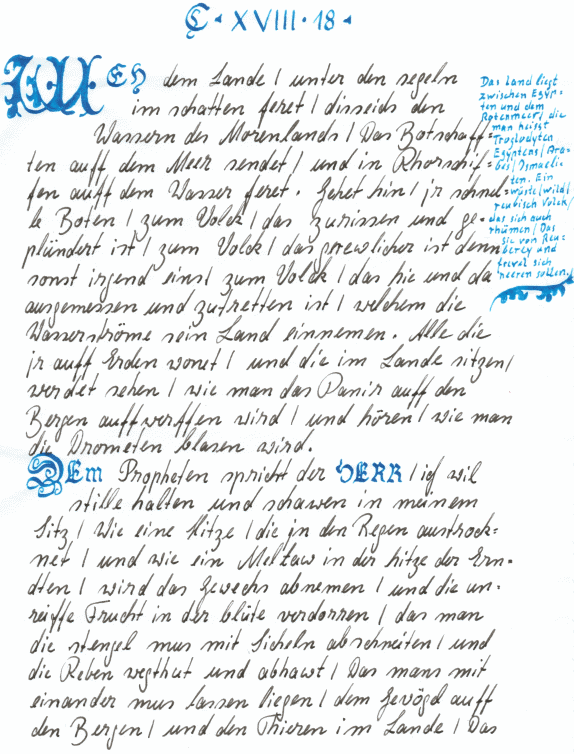 C · XVIII · 18 ·
WEH dem Lande / unter den segeln
im schatten feret / disseids den
Wassern des Morenlands / Das Botschaff=
ten auff dem Meer sendet / und in Rhorschif=
fen auff dem Wasser feret. Gehet hin / jr schnel=
le Boten / zum Volck / das zurissen und ge=
plündert ist / zum Volck / das grewlicher ist denn
sonst irgend eins / zum Volck / das hie und da
ausgemessen und zutretten ist / welchem die
Wasserströme sein Land einnemen. Alle die
jr auff Erden wonet / und die im Lande sitzen /
werdet sehen / wie man das Panir auff den
Bergen auffwerffen wird / und hören / wie man
die Drometen blasen wird.
DEm Propheten spricht der HERR / ich wil
stille halten und schawen in meinem
Sitz / Wie eine Hitze / die jn den Regen austrock=
net / und wie ein Meltaw in der hitze der Ern=
dten / wird das Gewechs abnemen / und die un=
reiffe Frucht in der blüte verdorren / das man
die stengel mus mit Sicheln abschneiten / und
die Reben wegthut und abhawt / Das mans mit
einander mus lassen liegen / dem Gevögel auff
den Bergen / und den Thieren im Lande / Das
Das Land liegt
zwischen Egyp=
ten und dem
Rotenmeer / die
man heisst
Troglodyten
Egyptens / Ara=
ber / Ismaeli=
ten. Ein
wüste / wild /
reubisch Volck /
das sich auch
rhümen / Das
sie von Reu=
berey und
frevel sich
neeren sollen.